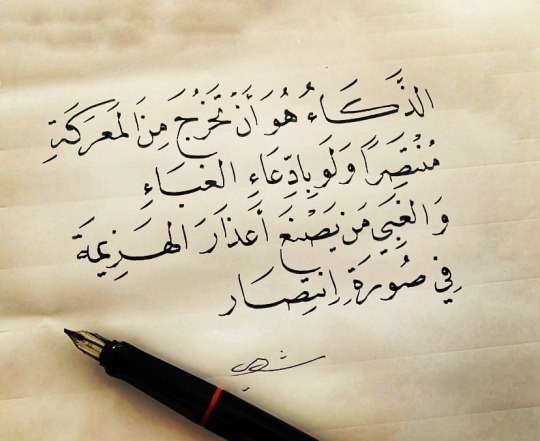 الذَّكَاءُ هُوَ أَنْ تَخْرُجَ مِنَ المَعَرَكَةِ
مُنْتَصِرًا وَلَو بِادِّعَاءِ الغَبَاءِ
وَالغَبِي مَن يَصْنَعَ أَعذَارَ الهَزِيمَة
فِي صُورَةِ اِنتِصَار